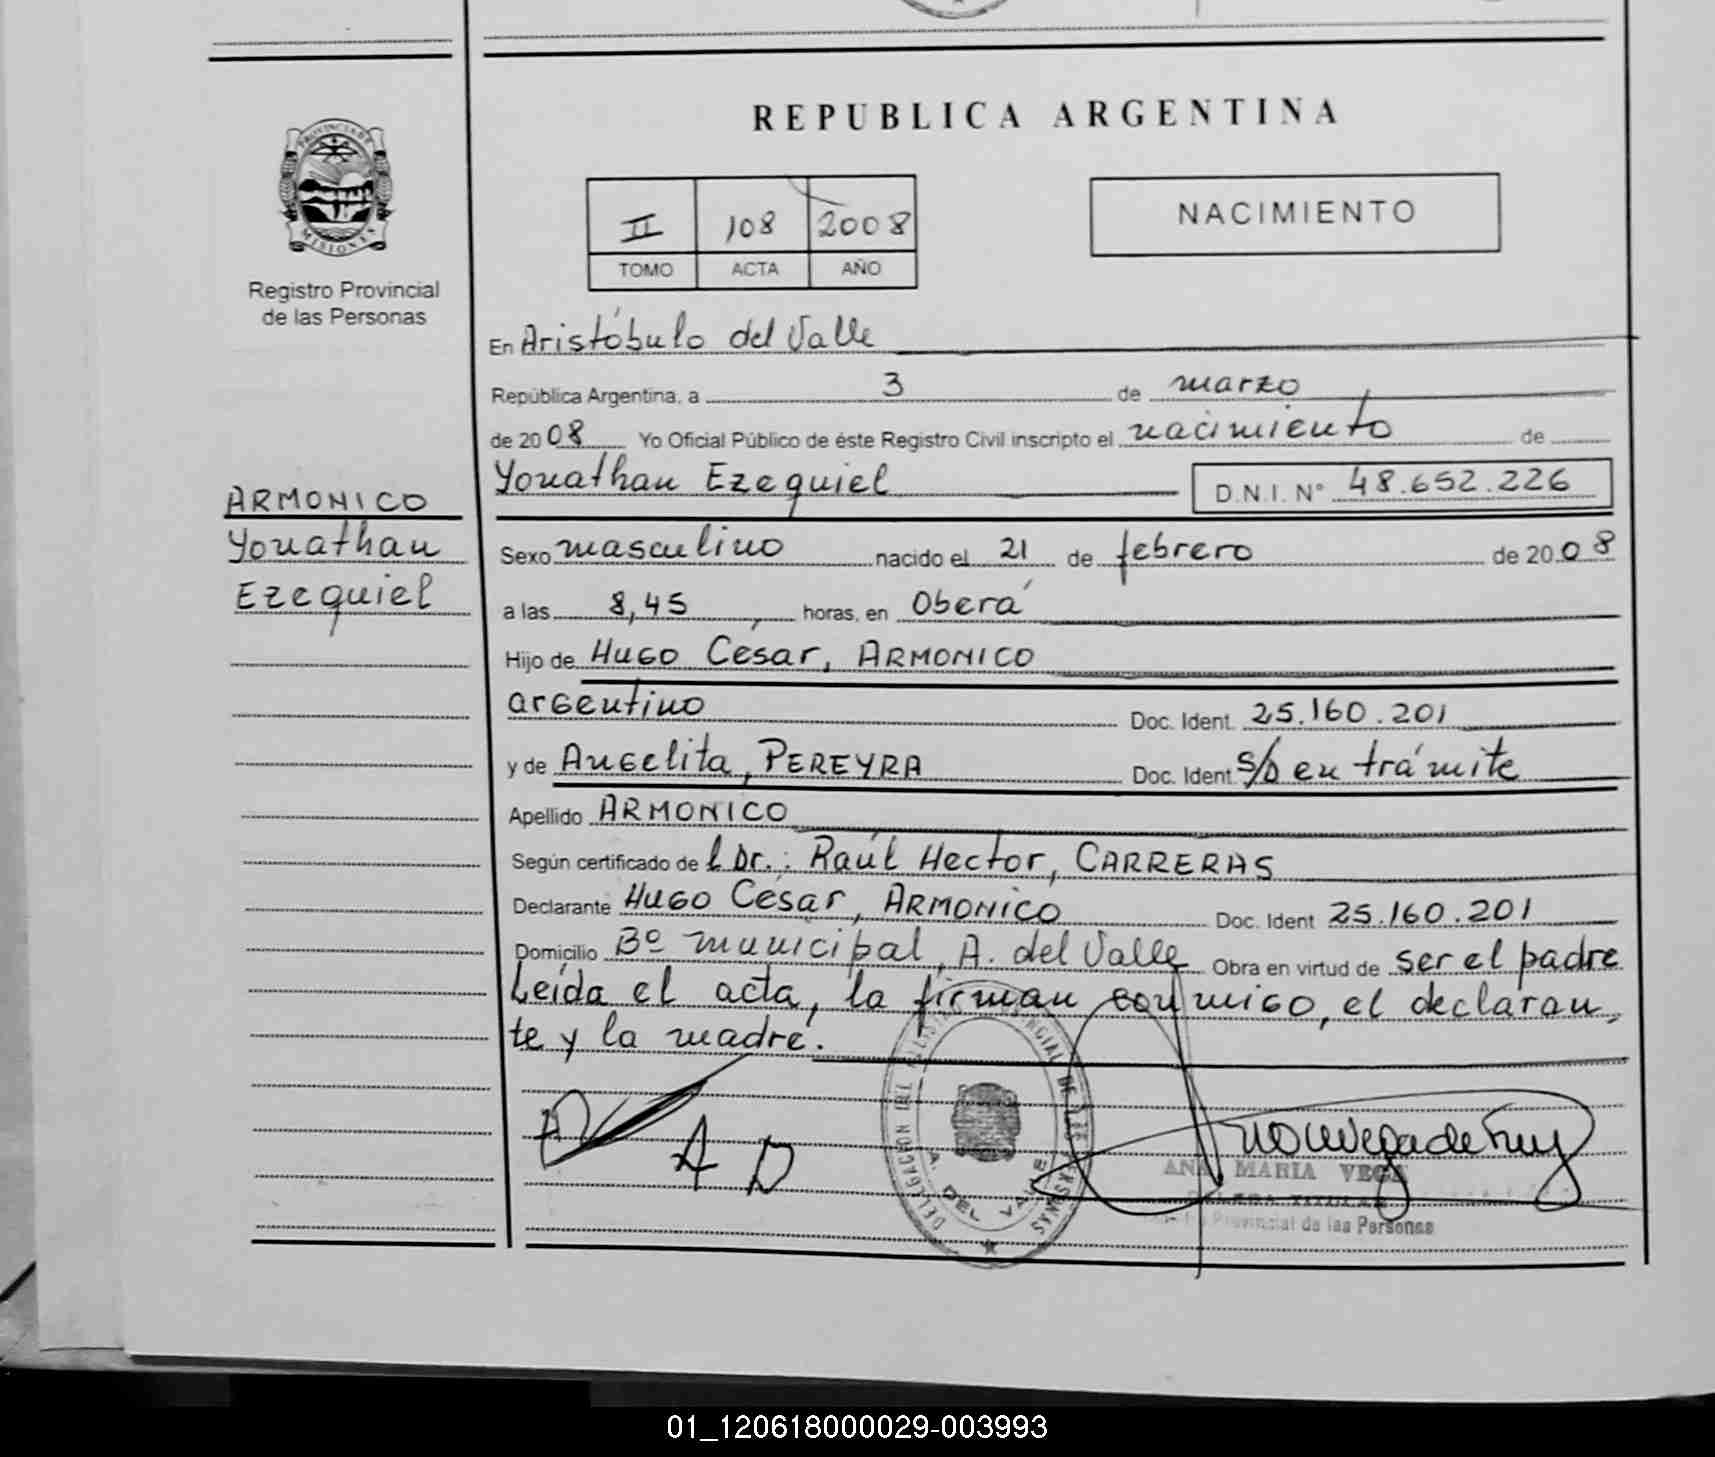 REPUBLICA ARGENTINA
PROVINCIA DE
MISIONES
Registro Provincial
de las Personas
II 108 2008
TOMO ACTA AÑO
NACIMIENTO
En Aristóbulo del Valle
República Argentina, a 3 de marzo
de 2008 Yo Oficial Público de éste Registro Civil inscripto el nacimiento de
Yonathan Ezequiel D.N.I. N° 48.652.226
ARMONICO
Yonathan
Ezequiel
Sexo masculino nacido el 21 de febrero de 2008
a las 8,45 horas, en Oberá
Hijo de Hugo Cesar, ARMONICO
argentino Doc. Ident. 25.160.201
y de Angelita, PEREYRA Doc. Ident s/D en trámite
Apellido ARMONICO
Según certificado de l Dr.: Raúl Hector, CARRERAS
Declarante Hugo César, ARMONICO Doc. Ident 25.160.201
Domicilio Bº municipal, A. del Valle Obra en virtud de ser el padre
Leída el acta, la firman conmigo, el declaran,
te y la madre.
A D
DELEGACION DEL REGISTRO PROVINCIAL DE LAS PERSONAS
A. DEL VALLE
ANA MARIA VEGA
Provincial de las Personas
01_120618000029-003993